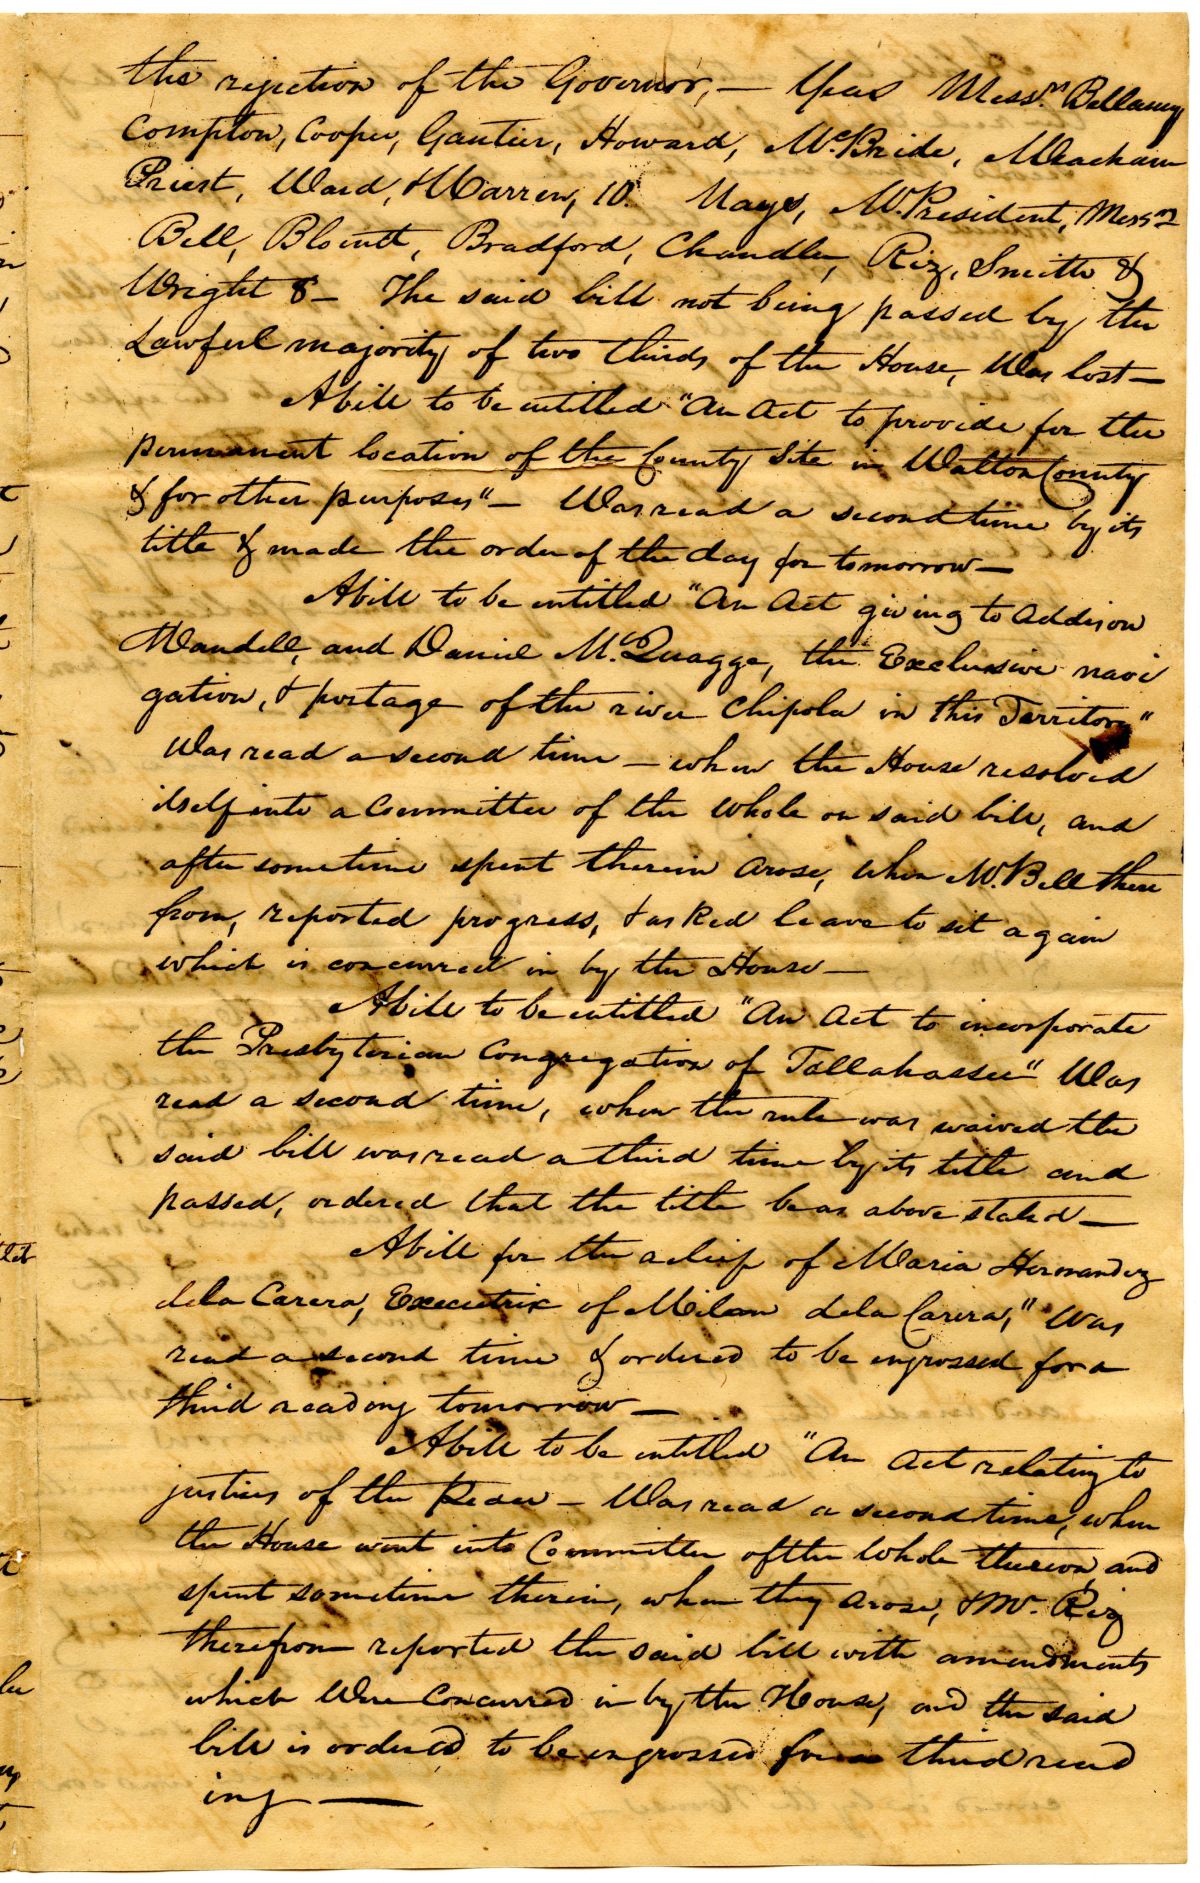 the rejection of the Governor, — Yeas Messrs Bellamy
Compton, Cooper, Gautier, Howard, McBride, Meacham
Priest, Ward, & Warren, 10. Nays, Mr. President, Messrs
Bell, Blount, Bradford, Chandler, Riz, Smith &
Wright 8 — The said bill not being passed by the
Lawful majority of two thirds of the House, Was lost —
A bill to be entitled "An Act to provide for the
permanent location of the County Site in Walton County
& for other purposes" — Was read a second time by its
title & made the order of the day for tomorrow —
A bill to be entitled "An Act giving to Addison
Mandell, and Daniel McQuagge, the Exclusive navi
gation, & portage of the river Chipola in this Territory"
Was read a second time — when the House resolved
itself into a Committee of the whole on said bill, and
after sometime spent therein arose, when Mr. Bell there
from, reported progress, & asked leave to sit again
which is concurred in by the House —
A bill to be entitled "An Act to incorporate
the Presbyterian Congregation of Tallahassee" Was
read a second time, when the rule was waived the
said bill was read a third time by its title and
passed, ordered that the title be as above stated —
A bill for the relief of Maria Hernandez
de la Carera, Executrix of Milan de la Carera," Was
read a second time & ordered to be engrossed for a
third reading tomorrow —
A bill to be entitled "An Act relating to
justices of the Peace — Was read a second time, when
the House went into Committee of the Whole thereon and
spent sometime therein, when they arose, & Mr. Riz
therefrom reported the said bill with amendments
which Were Concurred in by the House, and the said
bill is ordered to be engrossed for a third read
ing —